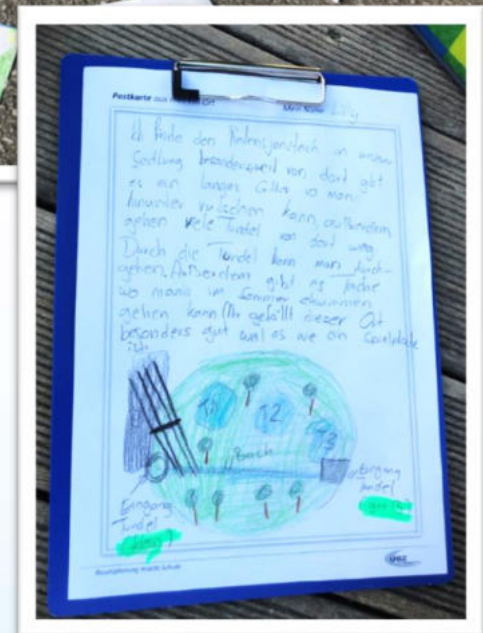 Postkarte aus Ort
Mein Name: Lilly
Ich finde den Retensjonsteich an unserer
Siedlung besonders weil von dort gibt
es ein langes Gitter wo man
hinunder rutschen kann, außerdem
gehen viele Tundel von dort weg
Durch die Tundel kann man durch-
gehen. Außerdem gibt es
wo mann im Sommer schwimmen
gehen kann. Mir gefällt dieser Ort
besonders gut weil es wie ein Spielplatz
ist.
11
12
13
Bach
Eingang
Tundel
Tundel
Raumplanung macht Schule
UBZ